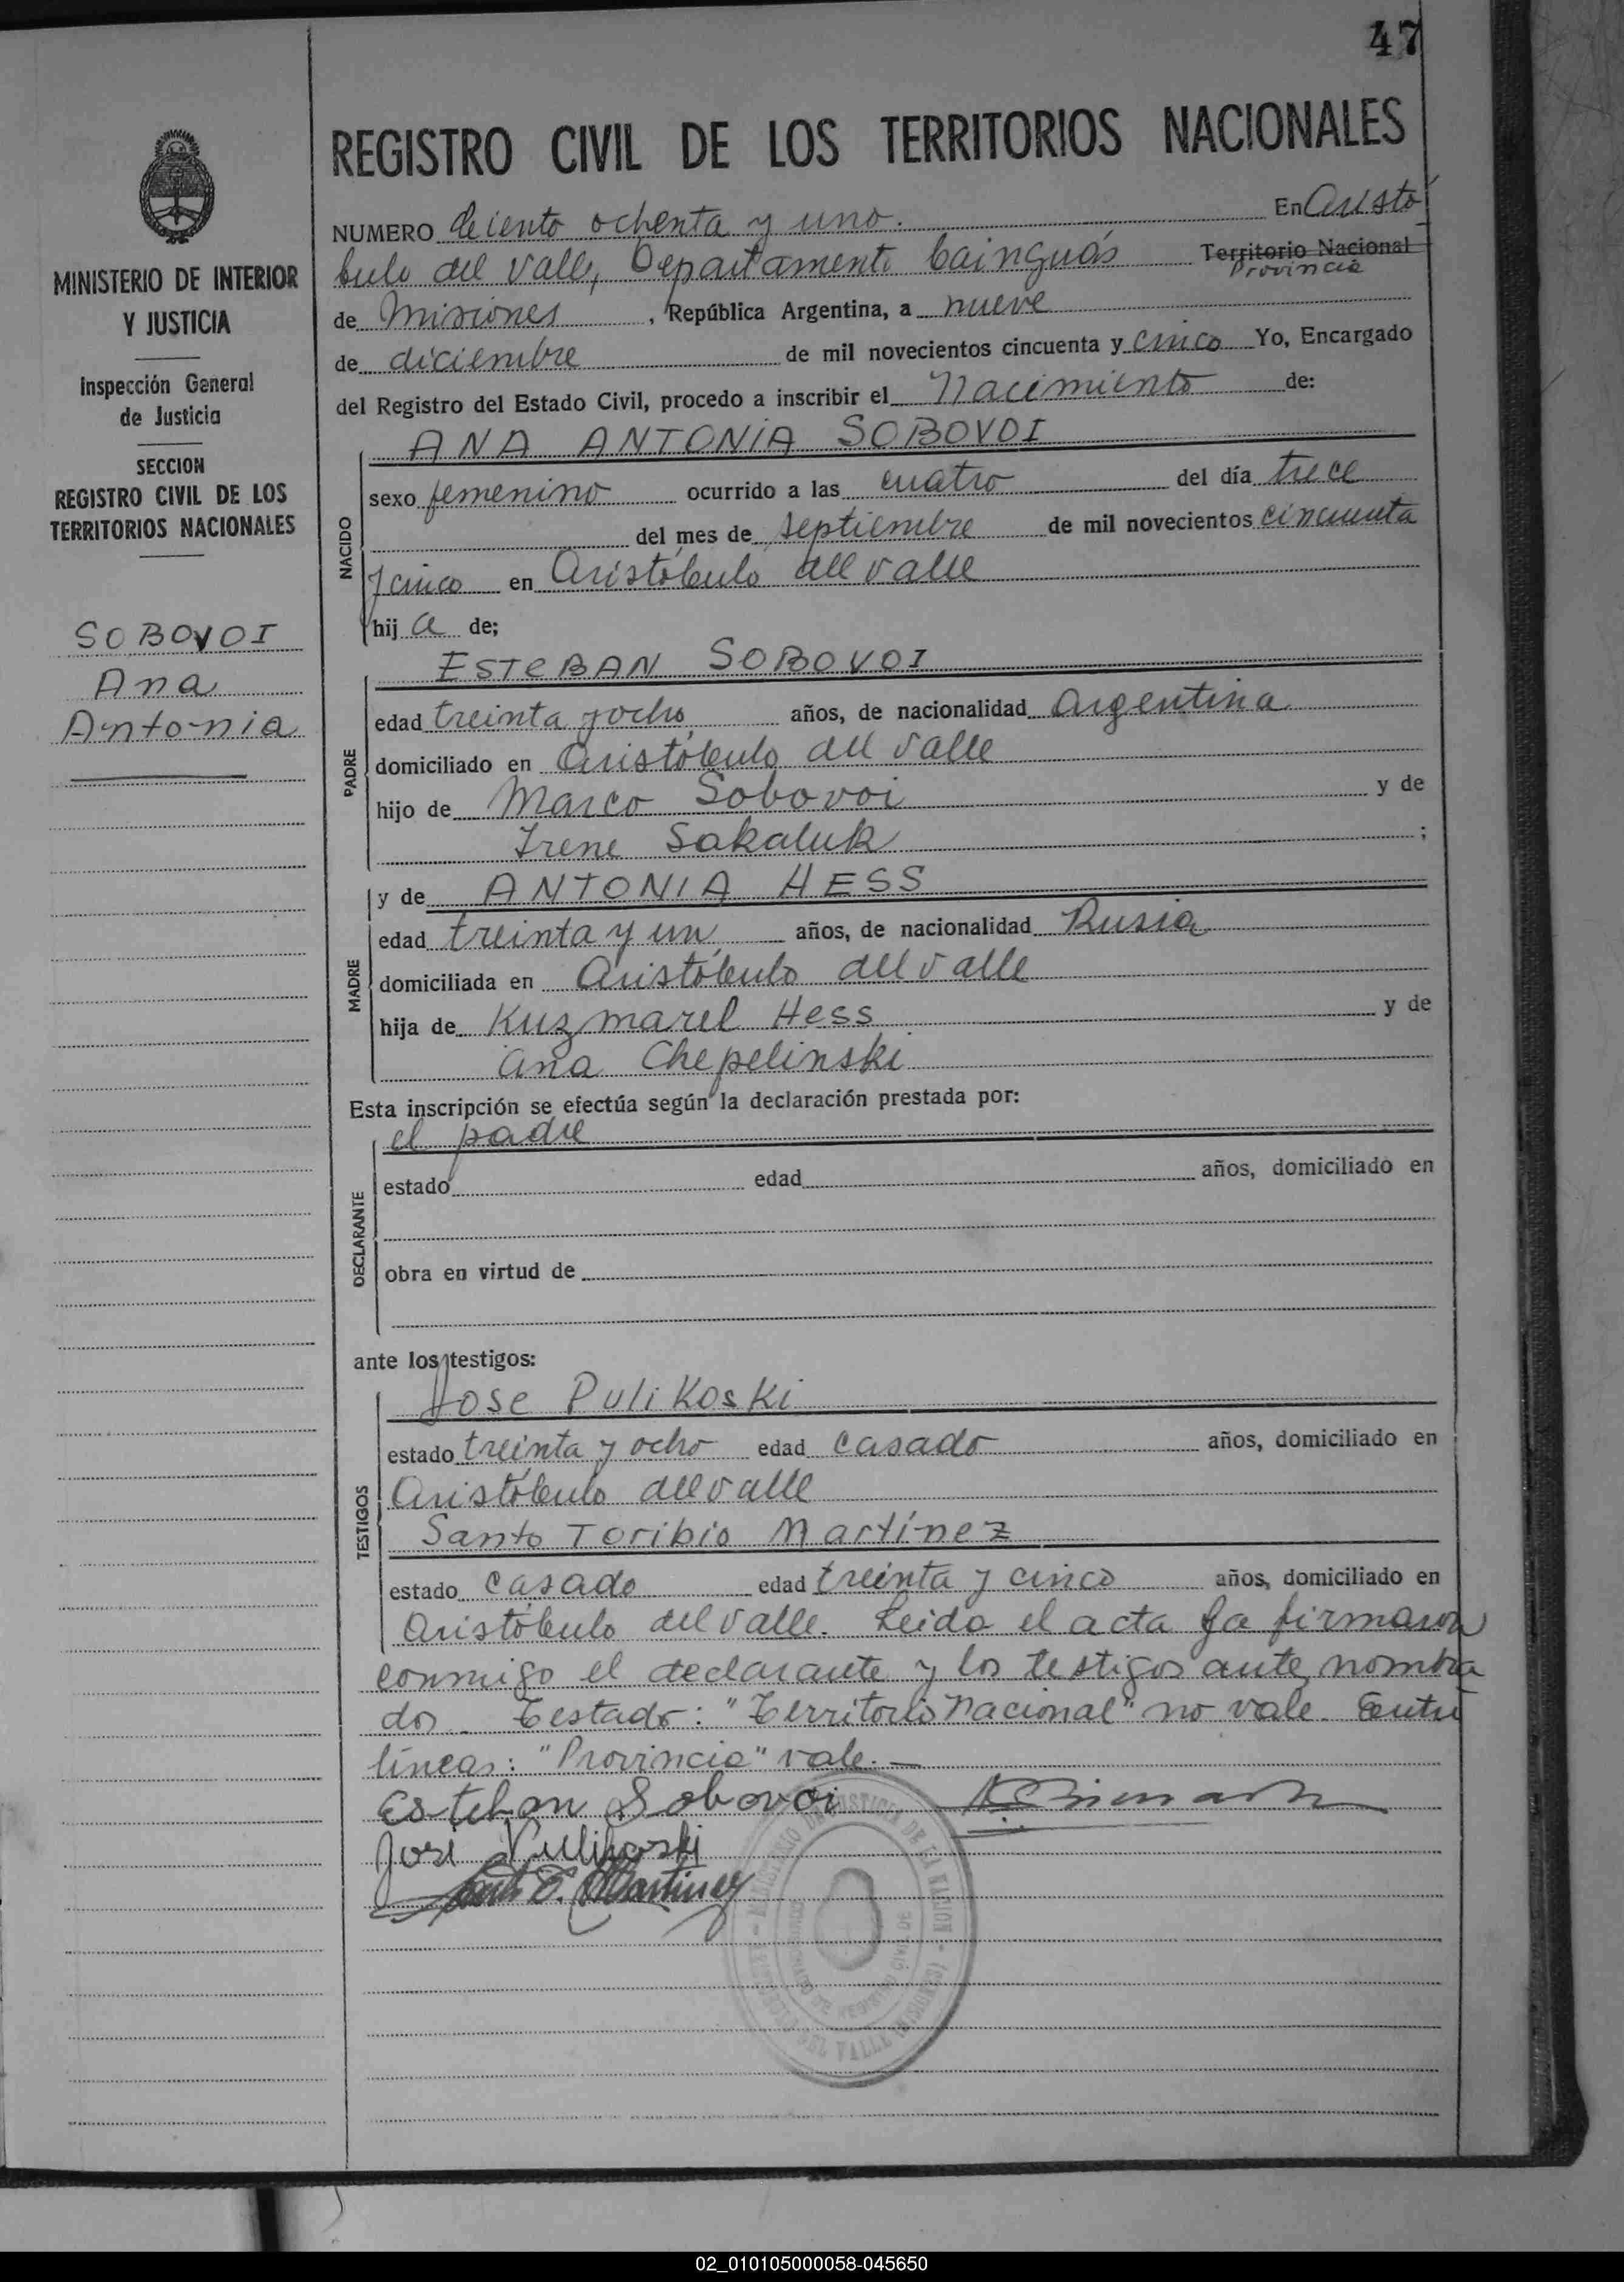 47
REGISTRO CIVIL DE LOS TERRITORIOS NACIONALES
NUMERO Ciento ochenta y uno. En Aristó
bulo del Valle, Departamento Cainguás Territorio Nacional
Provincia
de Misiones, República Argentina, a nueve
de diciembre de mil novecientos cincuenta y cinco Yo, Encargado
del Registro del Estado Civil, procedo a inscribir el Nacimiento de:
MINISTERIO DE INTERIOR
Y JUSTICIA
Inspección General
de Justicia
SECCION
REGISTRO CIVIL DE LOS
TERRITORIOS NACIONALES
SOBOVOI
Ana
Antonia
NACIDO
ANA ANTONIA SOBOVOI
sexo femenino ocurrido a las cuatro del día trece
del mes de septiembre de mil novecientos cincuenta
y cinco en Aristóbulo del Valle
hij a de;
PADRE
ESTEBAN SOBOVOI
edad treinta y ocho años, de nacionalidad Argentina
domiciliado en Aristóbulo del Valle
hijo de Marco Sobovoi y de
Irene Sakaluk ;
MADRE
y de ANTONIA HESS
edad treinta y un años, de nacionalidad Rusia
domiciliada en Aristóbulo del Valle
hija de Kuzmarel Hess y de
Ana Chepelinski
Esta inscripción se efectúa según la declaración prestada por:
DECLARANTE
el padre
estado edad años, domiciliado en
obra en virtud de
ante los testigos:
TESTIGOS
Jose Pulikoski
estado treinta y ocho edad casado años, domiciliado en
Aristóbulo del Valle
Santo Toribio Martínez
estado casado edad treinta y cinco años, domiciliado en
Aristóbulo del Valle. Leida el acta la firmaron
conmigo el declarante y los testigos ante nombra
dos. Testado: "Territorio Nacional" no vale. Entre
líneas: "Provincia" vale.
Esteban Sobovoi
José Pulikoski
Santo T. Martinez
JUSTICIA DE LA NACION
DEL VALLE (MISIONES)
02_010105000058-045650